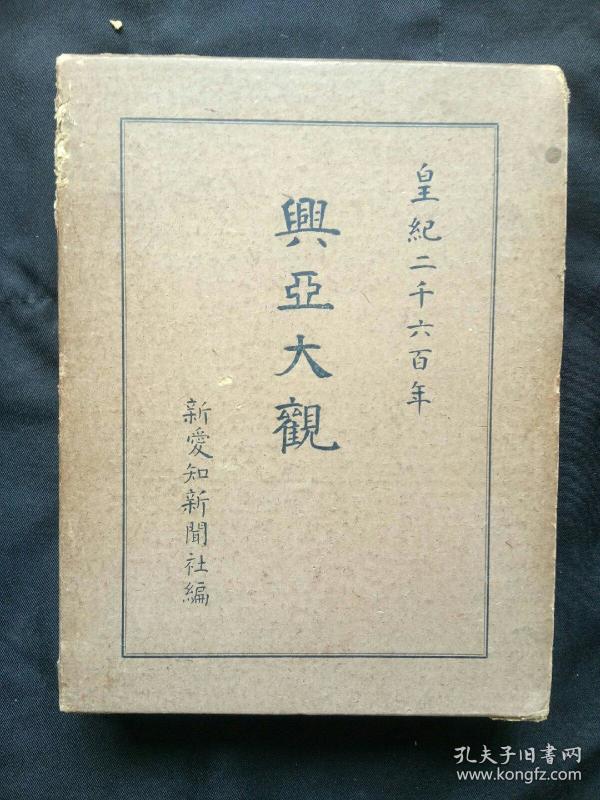 皇紀二千六百年
興亞大觀
新愛知新聞社編
孔夫子旧书网
www.kongfz.com